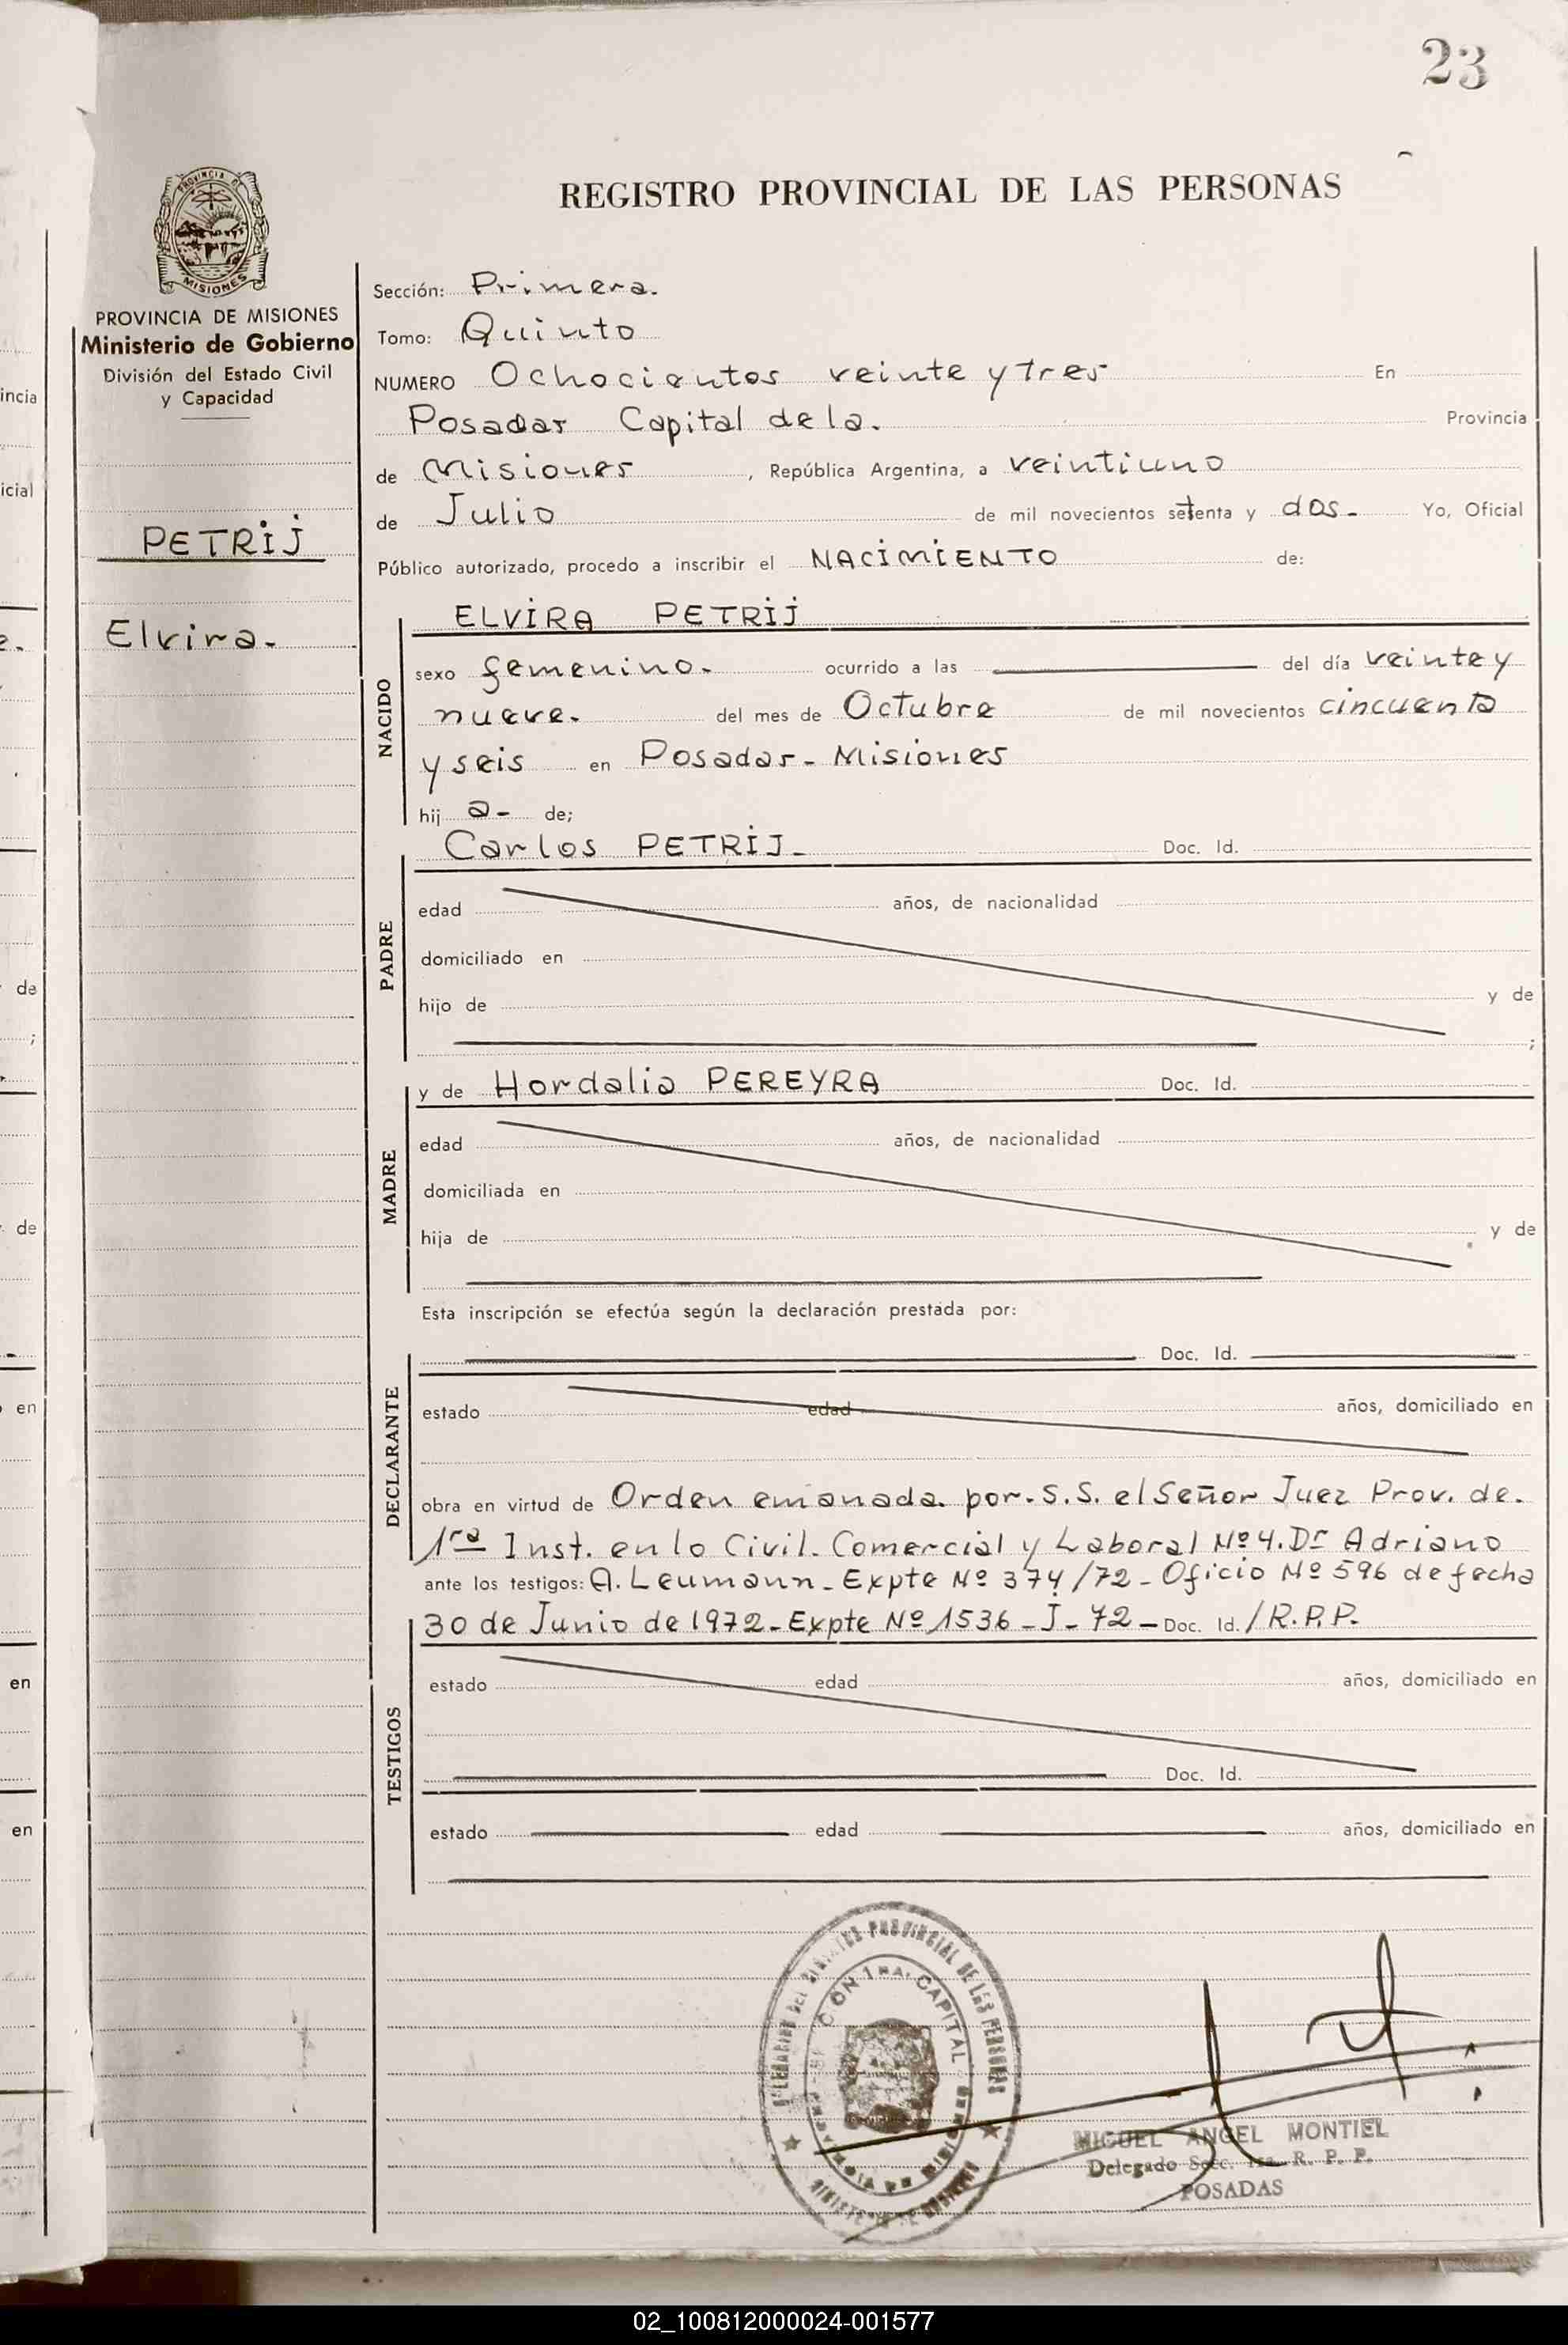 23
REGISTRO PROVINCIAL DE LAS PERSONAS
PROVINCIA DE MISIONES
Ministerio de Gobierno
División del Estado Civil
y Capacidad
PETRIJ
Elvira.
Sección: Primera.
Tomo: Quinto
NUMERO Ochocientos veinte y tres En
Posadas Capital de la. Provincia
de Misiones, República Argentina, a veintiuno
de Julio de mil novecientos setenta y dos. Yo, Oficial
Público autorizado, procedo a inscribir el NACIMIENTO de:
NACIDO
ELVIRA PETRIJ
sexo femenino. ocurrido a las del día veinte y
nueve. del mes de Octubre de mil novecientos cincuenta
y seis en Posadas - Misiones
hij a- de;
PADRE
Carlos PETRIJ- Doc. Id.
edad años, de nacionalidad
domiciliado en
hijo de y de
;
MADRE
y de Hordalia PEREYRA Doc. Id.
edad años, de nacionalidad
domiciliada en
hija de y de
Esta inscripción se efectúa según la declaración prestada por:
DECLARANTE
Doc. Id.
estado edad años, domiciliado en
obra en virtud de Orden emanada por. S.S. el Señor Juez Prov. de.
1ra Inst. en lo Civil. Comercial y Laboral Nº 4. Dr Adriano
ante los testigos: A. Leumann - Expte Nº 374/72 - Oficio Nº 596 de fecha
30 de Junio de 1972 - Expte Nº 1536 - J - 72 - Doc. Id. / R.P.P.
TESTIGOS
estado edad años, domiciliado en
Doc. Id.
estado edad años, domiciliado en
PROVINCIAL DE LAS PERSONAS
CION 1RA. CAPITAL
MIGUEL ANGEL MONTIEL
Delegado Secc. 1ra. R. P. P.
POSADAS
02_100812000024-001577